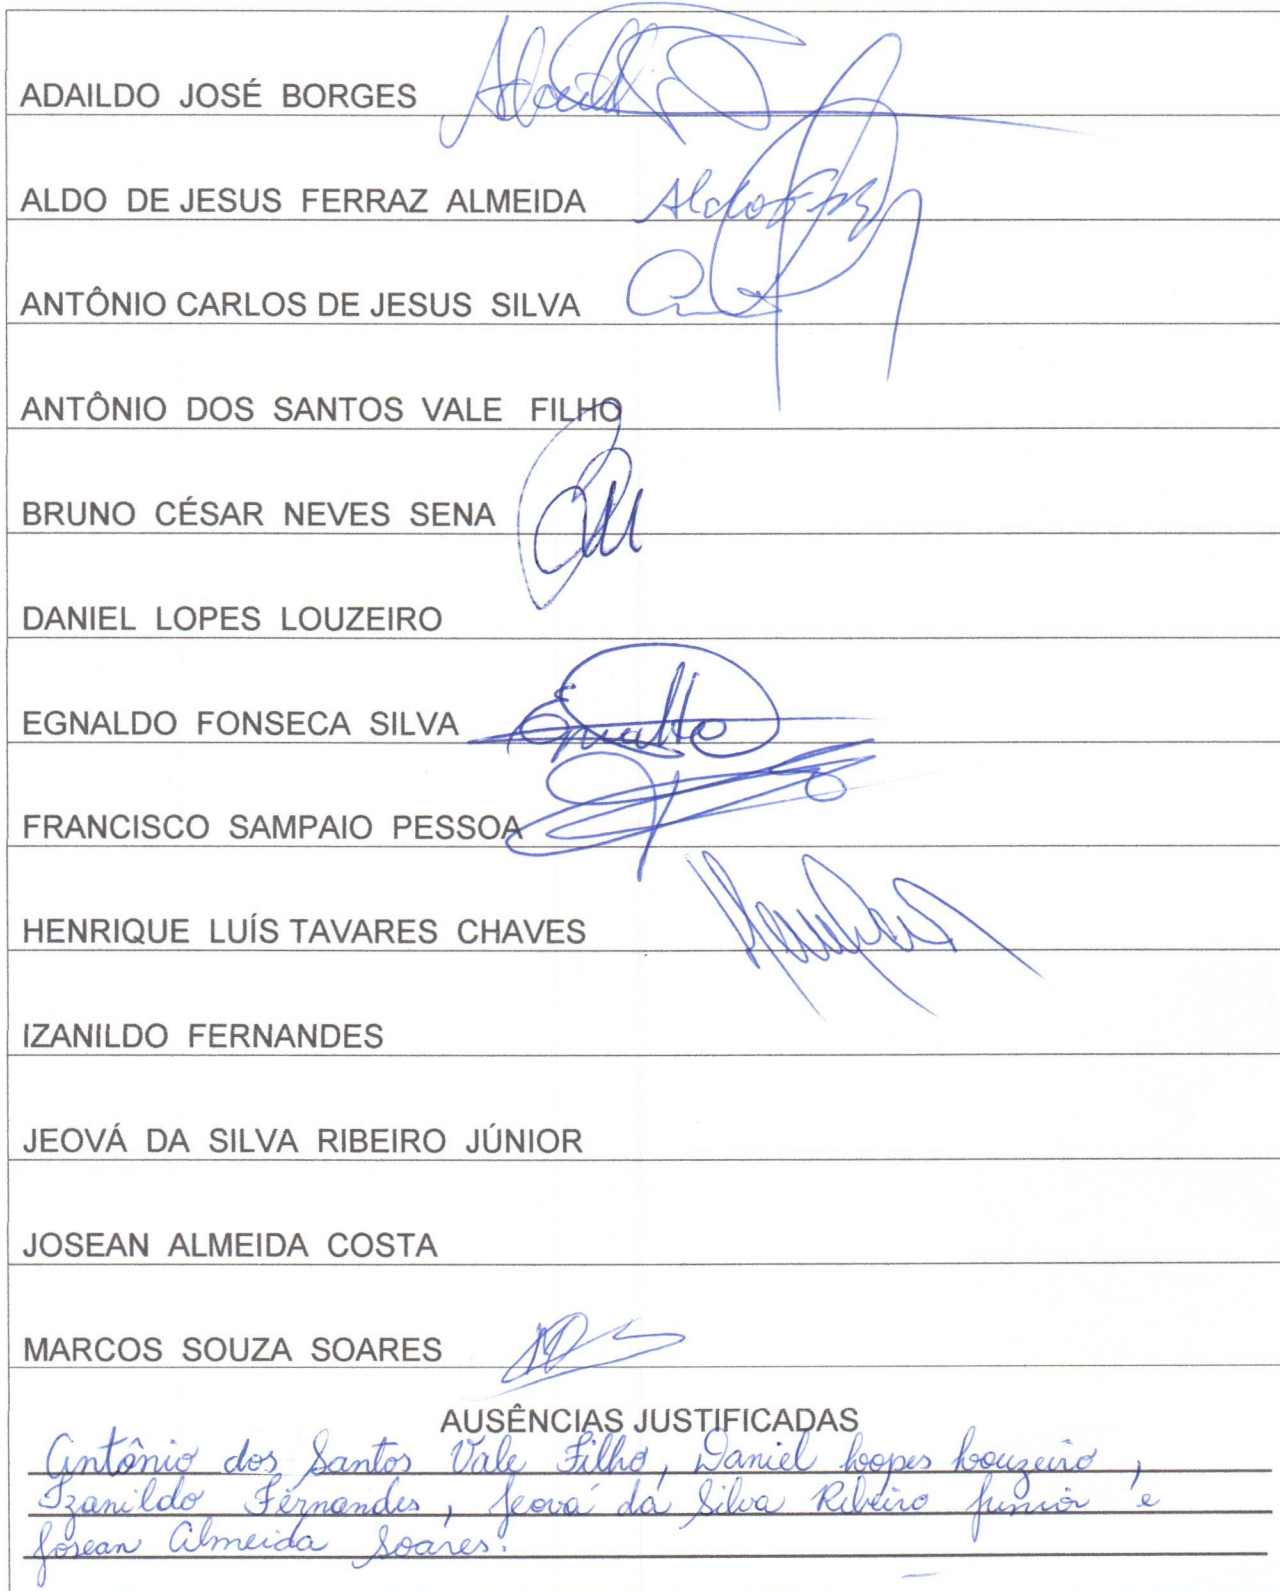 ADAILDO JOSÉ BORGES
ALDO DE JESUS FERRAZ ALMEIDA Aldo
ANTÔNIO CARLOS DE JESUS SILVA
ANTÔNIO DOS SANTOS VALE FILHO
BRUNO CÉSAR NEVES SENA
DANIEL LOPES LOUZEIRO
EGNALDO FONSECA SILVA
FRANCISCO SAMPAIO PESSOA
HENRIQUE LUÍS TAVARES CHAVES
IZANILDO FERNANDES
JEOVÁ DA SILVA RIBEIRO JÚNIOR
JOSEAN ALMEIDA COSTA
MARCOS SOUZA SOARES
AUSÊNCIAS JUSTIFICADAS
Antônio dos Santos Vale Filho, Daniel Loopes Louzeiro,
Izanildo Fernandes, Jeová da Silva Ribeiro Junior e
Josean Almeida Soares.